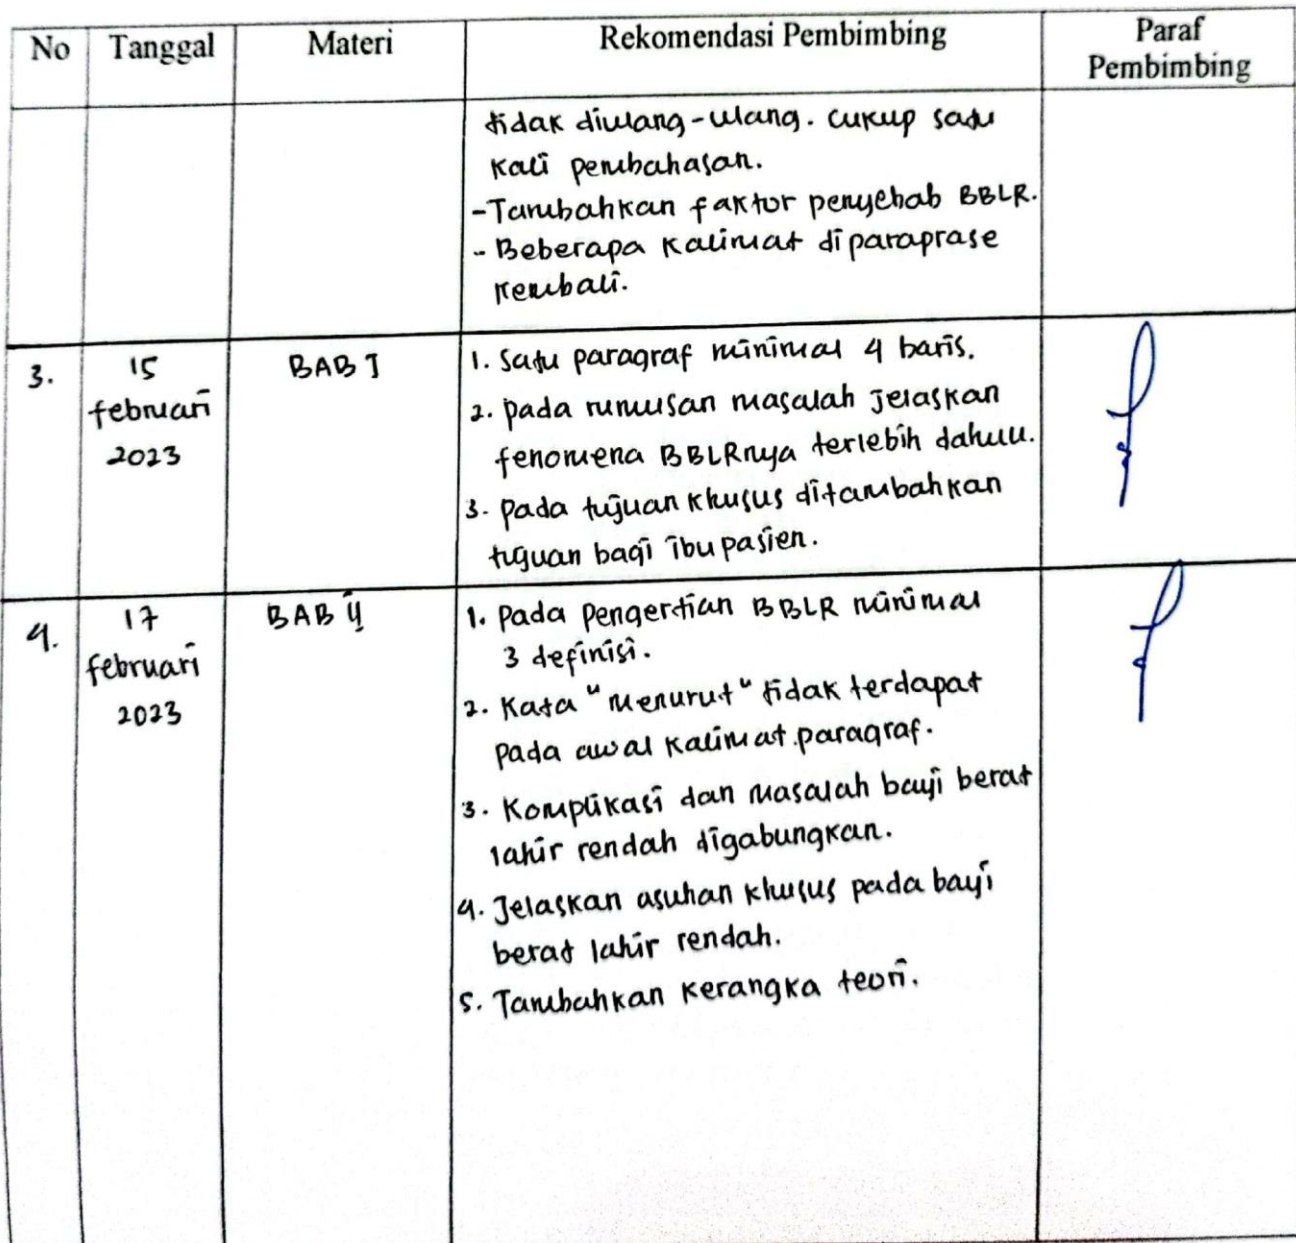 No Tanggal Materi Rekomendasi Pembimbing Paraf
Pembimbing
tidak diulang-ulang. cukup satu
kali pembahasan.
-Tambahkan faktor penyebab BBLR.
- Beberapa kalimat diparaprase
kembali.
3. 15 BAB I 1. Satu paragraf minimal 4 baris.
februari 2. pada rumusan masalah jelaskan
2023 fenomena BBLRnya terlebih dahulu.
3. pada tujuan khusus ditambahkan
tujuan bagi ibu pasien.
4. 17 BAB II 1. Pada pengertian BBLR minimal
februari 3 definisi.
2023 2. Kata "menurut" tidak terdapat
pada awal kalimat paragraf.
3. Komplikasi dan masalah bayi berat
lahir rendah digabungkan.
4. Jelaskan asuhan khusus pada bayi
berat lahir rendah.
5. Tambahkan kerangka teori.